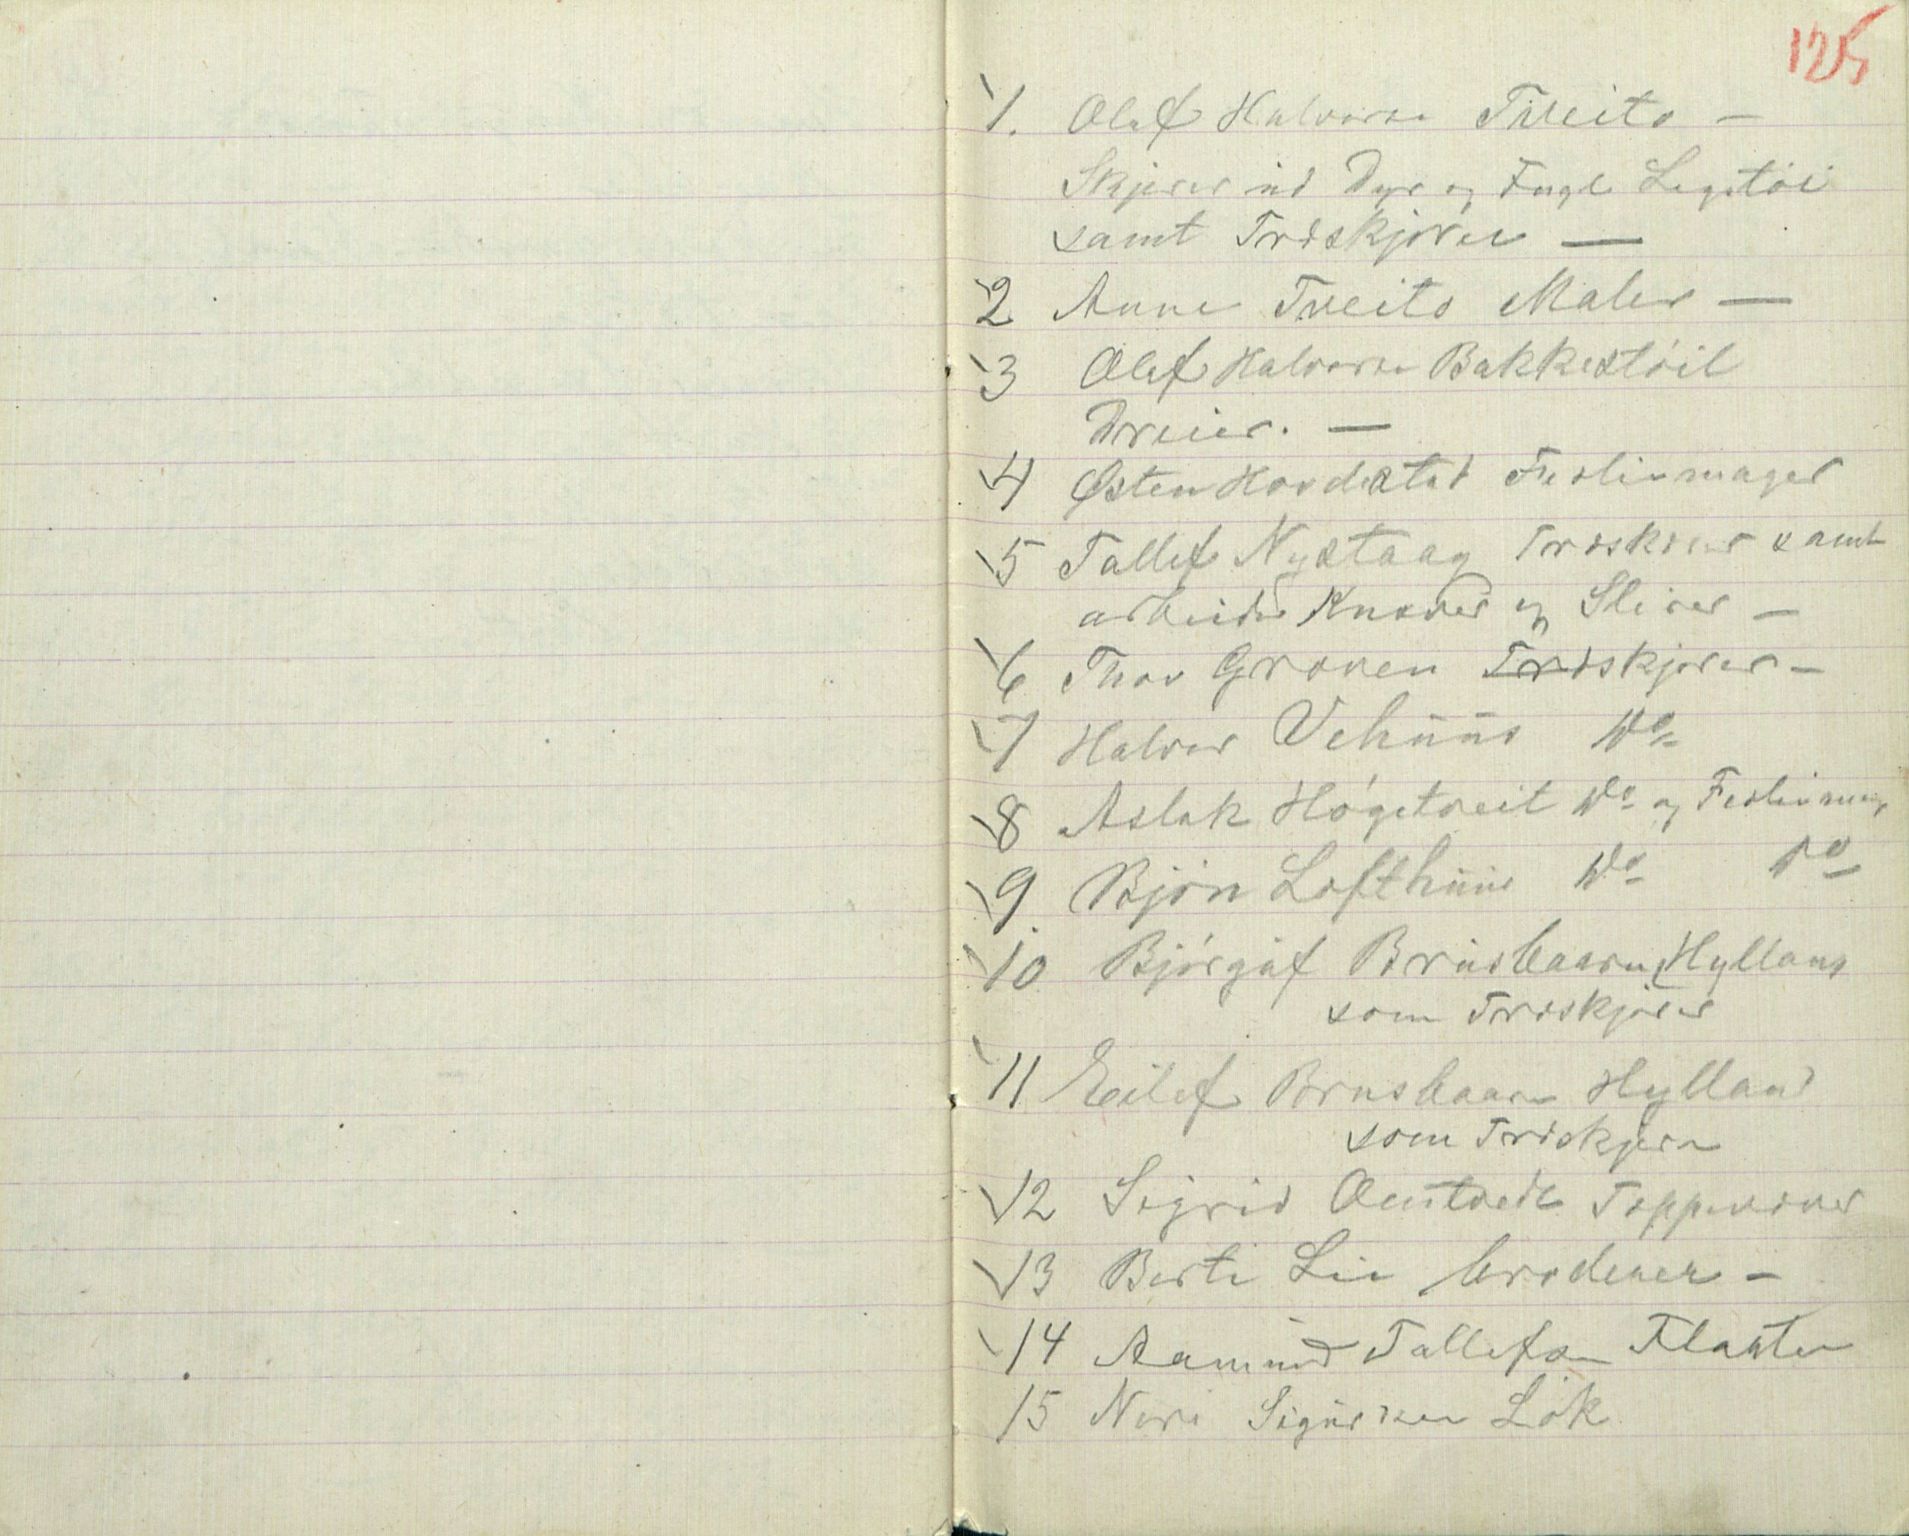 125
1. Olaf Halvorsen Tveito —
Skjærer ud Dyr og Fugle Legetöi
samt Træskjærer —
2 Anne Tveito Maler —
3 Olaf Halvorsen Bakkestöil
Dreier. —
4 Østen Hovdestad Fiolinmager
5 Tallef Nystaag Træskjærer samt
arbeider Knaver og Slirer —
6 Thov Groven Træskjærer —
7 Halvor Vehuus Do
8 Aslak Högetveit Do og Fiolinmag
9 Bjön Lofthuus Do Do
10 Björgúf Brúsbaarn Hylland
som Træskjærer
11 Eilef Brusbaarn Hylland
som Træskjærer
12 Sigrid Teppevæver
13 Berte Lie broderer —
14 Aamund Tallefsen Flaaten
15 Neri Sigursen Lök